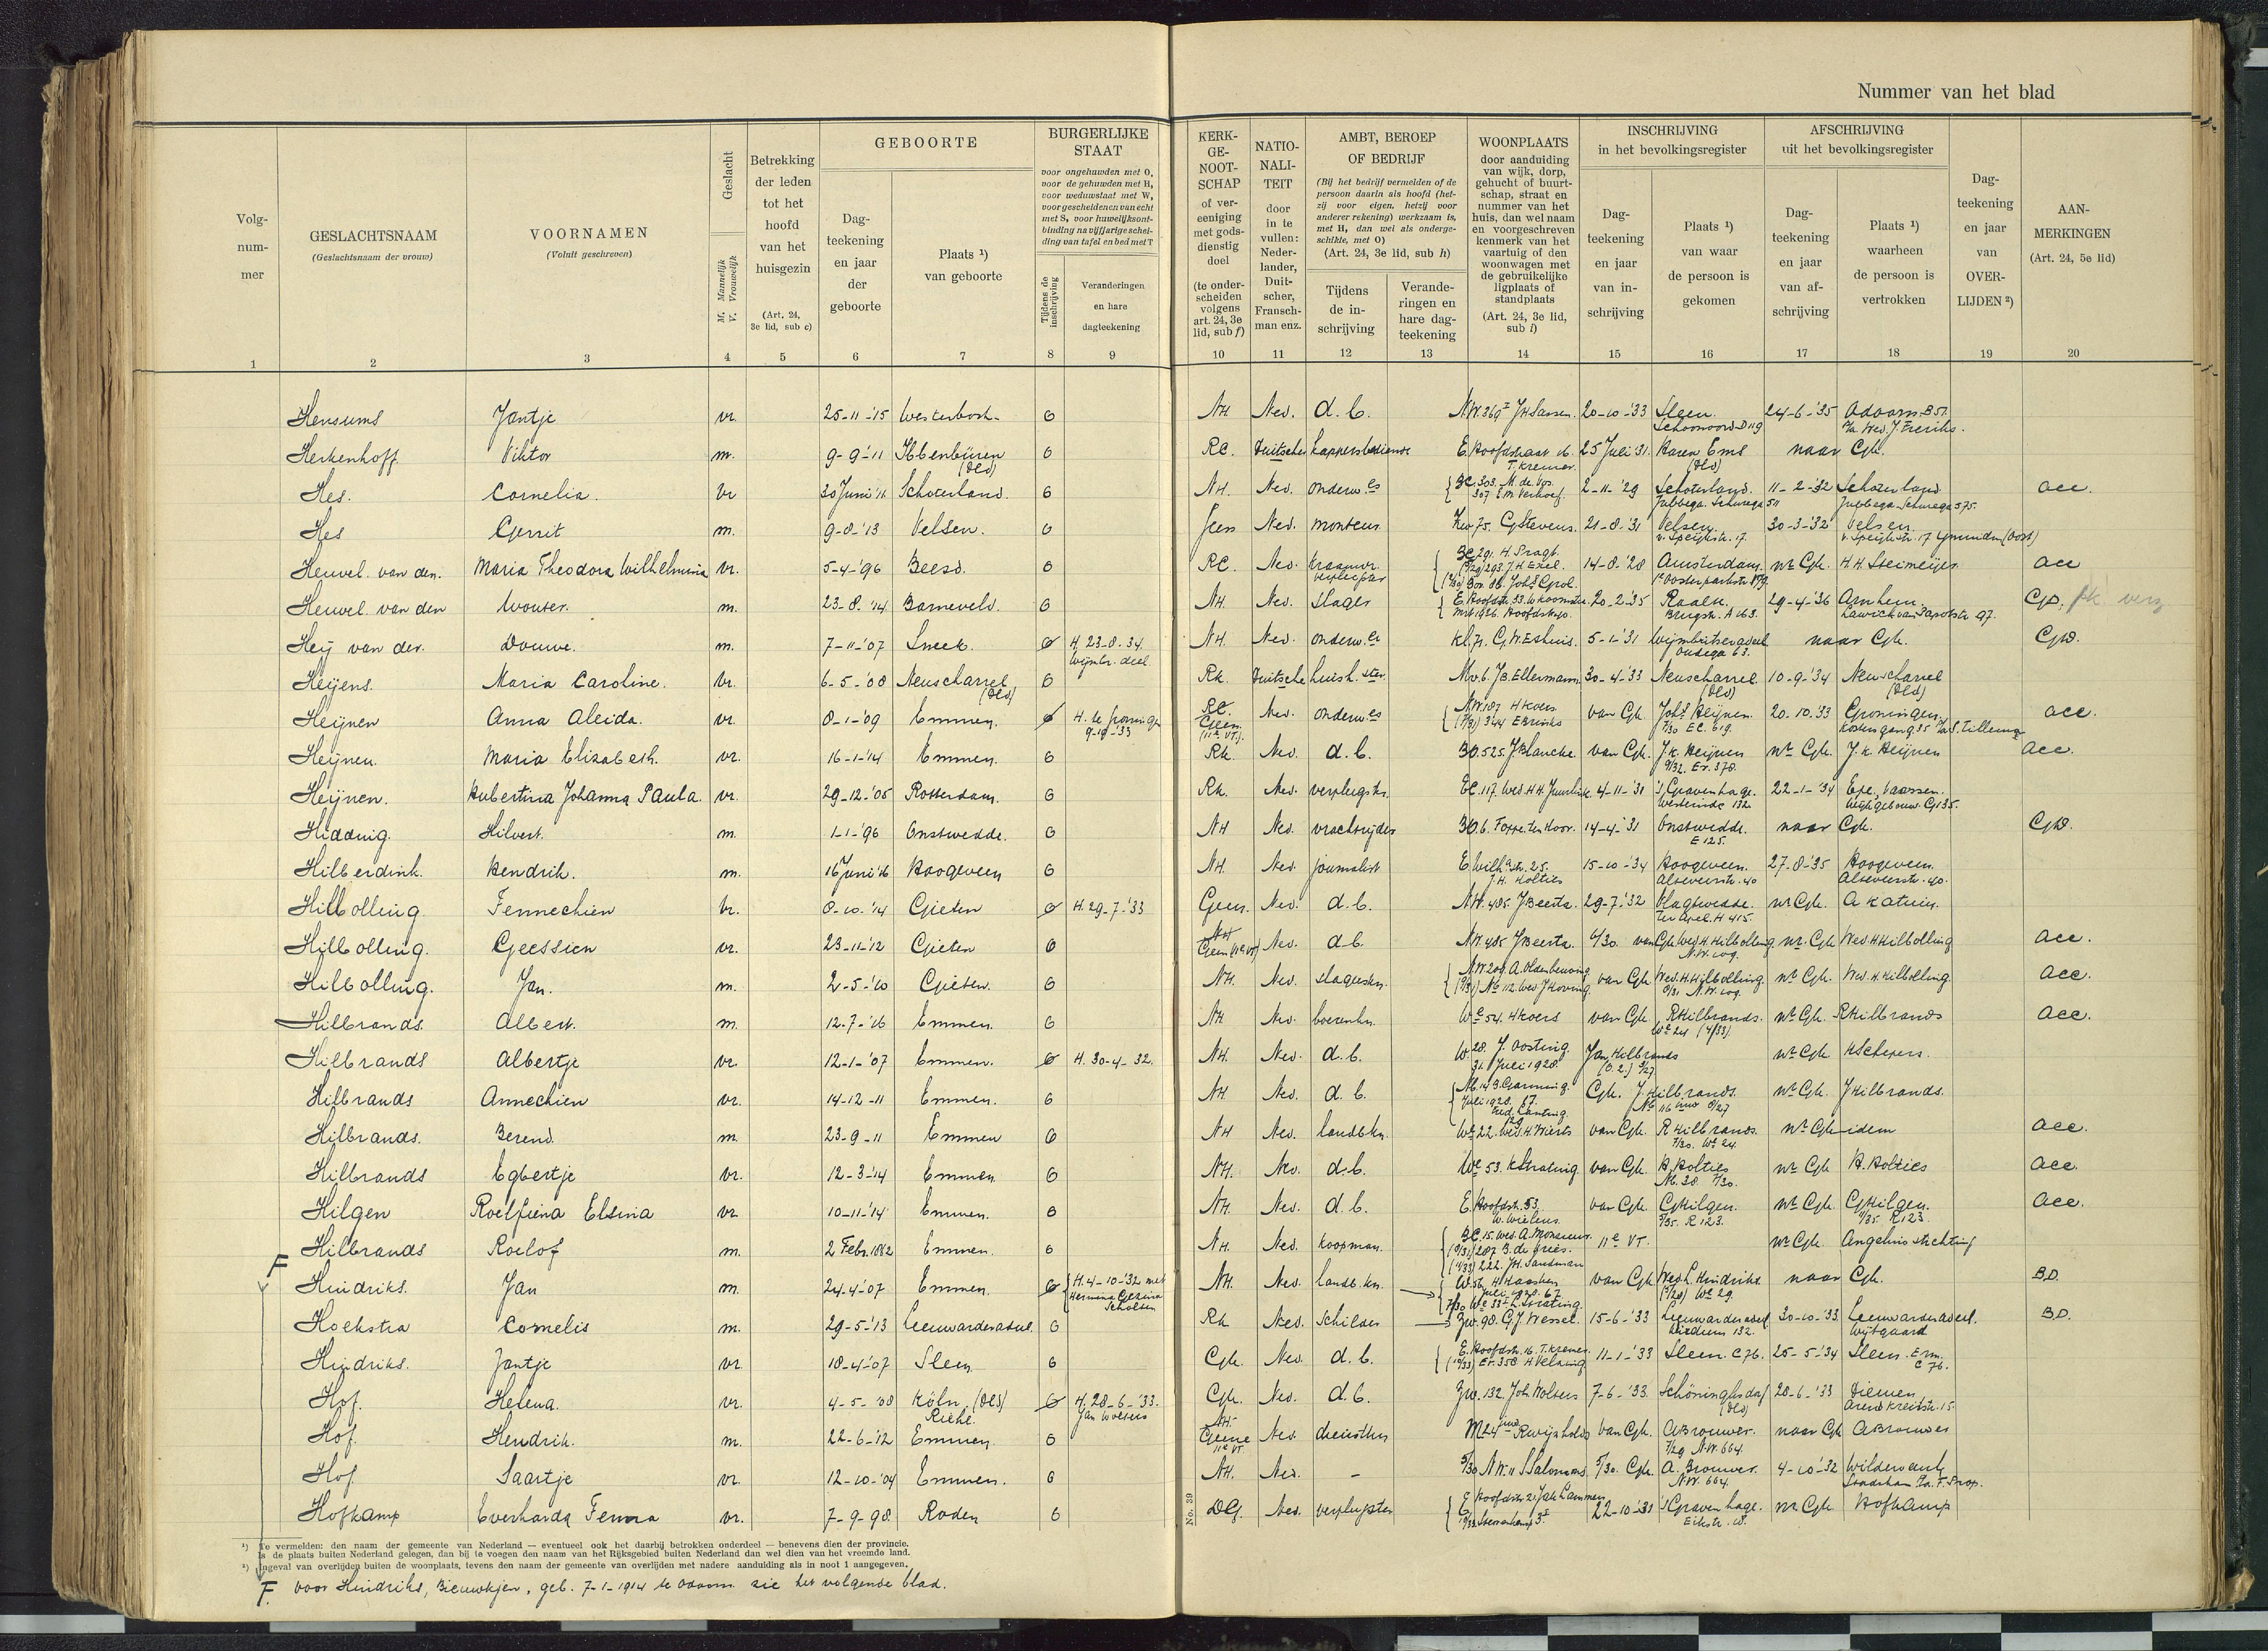 Nummer van het blad
Volg-nummer 1
GESLACHTSNAAM (Geslachtsnaam der vrouw) 2
VOORNAMEN (Voluit geschreven) 3
Geslacht M. Mannelijk V. Vrouwelijk 4
Betrekking der leden tot het hoofd van het huisgezin (Art. 24, 3e lid, sub c) 5
GEBOORTE
Dag-teekening en jaar der geboorte 6
Plaats ¹) van geboorte 7
BURGERLIJKE STAAT
voor ongehuwden met O, voor de gehuwden met H, voor weduwstaat met W, voor gescheidenen van echt met S, voor huwelijksontbinding na vijfjarige scheiding van tafel en bed met T
Tijdens de inschrijving 8
Veranderingen en hare dagteekening 9
KERK-GE-NOOT-SCHAP of vereeniging met godsdienstig doel (te onderscheiden volgens art. 24, 3e lid, sub f) 10
NATIO-NALI-TEIT door in te vullen: Nederlander, Duitscher, Franschman enz. 11
AMBT, BEROEP OF BEDRIJF
(Bij het bedrijf vermelden of de persoon daarin als hoofd (hetzij voor eigen, hetzij voor anderer rekening) werkzaam is, met H, dan wel als ondergeschikte, met O) (Art. 24, 3e lid, sub h)
Tijdens de inschrijving 12
Veranderingen en hare dagteekening 13
WOONPLAATS door aanduiding van wijk, dorp, gehucht of buurtschap, straat en nummer van het huis, dan wel naam en voorgeschreven kenmerk van het vaartuig of den woonwagen met de gebruikelijke ligplaats of standplaats (Art. 24, 3e lid, sub i) 14
INSCHRIJVING in het bevolkingsregister
Dag-teekening en jaar van inschrijving 15
Plaats ¹) van waar de persoon is gekomen 16
AFSCHRIJVING uit het bevolkingsregister
Dag-teekening en jaar van afschrijving 17
Plaats ¹) waarheen de persoon is vertrokken 18
Dag-teekening en jaar van OVER-LIJDEN ²) 19
AAN-MERKINGEN (Art. 24, 5e lid) 20
Hensums Jantje vr. 25-11-'15 Westerbork O NH Ned. d.b. N.W.369 I JH Sassen. 20-10-'33 Sleen. Schoonoord D119 24-6-'35 Odoorn B51. p/a Wed. J. Freriks.
Herkenhoff Viktor m. 9-9-'11 Ibbenbüren (Dld) O RC. Duitscher kappersbediende E. Hoofdstraat 16. T. Kremer. 25 Juli 31. Haren Ems (Dld) naar Cgk.
Hes. Cornelia. vr 30 Juni '11 Schoterland. O NH. Ned. onderw.es BC. 303. M. de Vos. 307 E M Verhoef. 2-11-'29 Schoterland. Jubbega Schurega 511 11-2-'32 Schoterland Jubbega-Schurega 575. acc.
Hes Gerrit m. 9-8-'13 Velsen. O Geen Ned. monteur Kw 75. G Stevens. 21-8-'31 Velsen. v. Speijkstr. 17. 30-3-'32 Velsen. v. Speijkstr. 17 Ymuiden (Oost)
Heuvel. van den. Maria Theodora Wilhelmina vr. 5-4-'96 Beesd. O RC. Ned. kraamvr. verpleegster BC 291. H. Pragt. 293 J H Exel. 14-8-'28 Amsterdam. 1e Oosterparkstr 179. nr. Cgk. H.H. Steimeijer acc
Heuvel van den Wouter. m. 23-8-'14 Barneveld. O NH. Ned. slager E. Hoofdstr. 33. W Koomstra. 20-2-'35 Raalte. Brugstr. A 163. 29-4-'36 Arnhem. Lawick van Pabststr 97. CgD.
Heij van der. Douwe. m. 7-11-'07 Sneek. O H. 23-8-34. Wijmbr. deel NH Ned. onderw.er Kl. 71. G.W. Eshuis. 5-1-'31 Wijmbritseradeel Oudega 63. naar Cgk. CgD.
Heijens. Maria Caroline. vr. 6-5-'08 Neuscharrel (Dld) O Rk. Duitsche huish.ster Mv. 6. J B. Ellermann. 30-4-'33 Neuscharrel (Dld) 10-9-'34 Neuscharrel (Dld)
Heijnen Anna Aleida. vr. 8-1-'09 Emmen. O H. te Groningen 9-10-'33 RC. Geen. (11e VT). Ned. onderw.es N.W. 187 H Koers 344 E Brinks van Cgk Joh.s Heijnen. 7/30 EC. 619. 20-10-'33 Groningen. Kostersgang 35 p/a S. Tillema acc.
Heijnen. Maria Elizabeth. vr. 16-1-'14 Emmen. O Rk. Ned. d.b. BO. 525. J Blancke. van Cgk. J.K. Heijnen 9/32. Er. 378. nr. Cgk. J.K. Heijnen acc.
Heijnen. Hubertina Johanna Paula. vr. 29-12-'05 Rotterdam. O Rk. Ned. verpleegstr. EC. 117. Wed. H H. Juurlink. 4-11-'31 's Gravenhage. Westeinde 132. 22-1-'34 Epe, Vaassen. Wijkgebouw. G 135.
Hidding. Hilvert. m. 1-1-'96 Onstwedde. O NH Ned. vrachtrijder BO 6. Foppe ten Hoor. 14-4-'31 Onstwedde. E 125. naar Cgk. CgD.
Hilberdink. Hendrik. m. 16 Juni '16 Hoogeveen O NH. Ned. journalist E. Wilh.astr. 25. J.H. Holties 15-10-'34 Hoogeveen. Alteveerstr. 40 27-8-'35 Hoogeveen. Alteveerstr. 40.
Hilbolling Fennechien vr. 8-10-'14 Gieten O H. 29-7-'33 Geen. Ned. d.b. N.W. 485. J Beerta. 29-7-'32 Vlagtwedde. Ter Apel. H 415. nr Cgk. A Katuin.
Hilbolling. Geessien vr. 23-11-'12 Gieten O NH Geen (11e VT) Ned. d.b. N.W. 485 J Beerta. 6/30 van Cgk Wed. H. Hilbolling N.W. 109. nr. Cgk Wed H Hilbolling acc.
Hilbolling. Jan. m. 2-5-'10 Gieten. O NH. Ned. slagerskn. N.W 209. A. Oldenbeuving Nb 112 Wed J Koning. van Cgk Wed. H. Hilbolling. 8/31 N.W. 109. nr Cgk. Wed. H. Hilbolling. acc.
Hilbrands. Albert. m. 12-7-'16 Emmen. O NH Ned. boerenkn. We 54. H Koers van Cgk R Hilbrands. We 24 (4/33) nr Cgk. R Hilbrands acc.
Hilbrands Albertje vr. 12-1-'07 Emmen. O H. 30-4-32. NH. Ned. d.b. W. 28. J. Oosting. 31. Juli 1928. Jan Hilbrands nr Cgk. K Schepers.
Hilbrands Annechien vr. 14-12-11 Emmen. O NH Ned. d.b. Nb. 14 B. Garming. Juli 1928. 67. Fred. Lanting. Cgk. J. Hilbrands. nr Cgk. J Hilbrands.
Hilbrands. Berend. m. 23-9-11 Emmen O NH Ned. landb.kn. We 22. Wed. H. Wierts van Cgk. R Hilbrands. 7/30. We 24. nr Cgk idem acc.
Hilbrands Egbertje vr. 12-3-'14 Emmen. O NH. Ned. d.b. We 53. K Strating van Cgk. H. Holties Nb. 28 7/30. nr Cgk H. Holties acc.
Hilgen Roelfiena Elsina vr 10-11-'14 Emmen. O NH. Ned. d.b. E. Hoofdstr. 53. W. Wielens van Cgk. G Hilgen. 5/35. R 123. nr Cgk. G Hilgen. 4/35. R 123. acc.
Hilbrands Roelof m. 2 Febr. 1882 Emmen. O NH. Ned. koopman. BC. 15. Wed. A. Monsieurs. 287 B. de Vries. 222. JH. Sandman 11e VT. nr Cgk. Angelus stichting
F Hindriks. Jan m. 24-4-'07 Emmen. O H. 4-10-'32 met Hermina Gezina Scholten NH. Ned. landb.kn. W. 56. H Haasken Juli 1928. 67. 7/30 We 33 I L. Strating. van Cgk Wed L. Hindriks We 29. naar Cgk. B.D.
Hoekstra Cornelis m. 29-5-'13 Leeuwarderadeel. O Rk Ned. schilder Zw. 98. G.J. Wessel. 15-6-'33 Leeuwarderadeel Wirdum 132. 30-10-'33 Leeuwarderadeel. Wijtgaard B.D.
Hindriks. Jantje vr 18-4-'07 Sleen O Cgk. Ned. d.b. E. Hoofdstr. 16. T. Kremer. Er. 358 H Velzing 11-1-'33 Sleen. C 76. 25-5-'34 Sleen. Erm. C 76.
Hof. Helena. vr. 4-5-'08 Köln. (Dld) Riehl. O H. 28-6-'33. Jan Wolters Cgk. Ned. d.b. Zw. 132. Joh Wolters 7-6-'33. Schöninghsdorf (Dld) 28-6-'33 Diemen, Arent Kreitstr. 15.
Hof. Hendrik. m. 22-6-'12 Emmen. O NH. Geene 11e VT Ned. dienstkn M 24 R Wijnholds van Cgk. A Brouwer. 7/29 N.W. 664. naar Cgk A Brouwer
Hof. Saartje vr. 12-10-'04 Emmen. O NH. Ned. - 5/30 N W. 11 S Salomons. 5/30. Cgk. A. Brouwer. N.W. 664. 4-10-'32 Wildervank Stadskan. p/a. F. Prop.
Hofkamp Everharda Fenna vr. 7-9-98. Roden O No. 39 DG. Ned. verpleegster E Hoofdstr 21 Jak Lammen 22-10-'31 's Gravenhage. Eikstr. 10. nr Cgk Hofkamp
¹) Te vermelden: den naam der gemeente van Nederland — eventueel ook het daarbij betrokken onderdeel — benevens dien der provincie.
Is de plaats buiten Nederland gelegen, dan bij te voegen den naam van het Rijksgebied buiten Nederland dan wel dien van het vreemde land.
²) Ingeval van overlijden buiten de woonplaats, tevens den naam der gemeente van overlijden met nadere aanduiding als in noot 1 aangegeven.
F. voor Hindriks, Bieuwkjen, geb. 7-1-1914 te Odoorn zie het volgende blad.